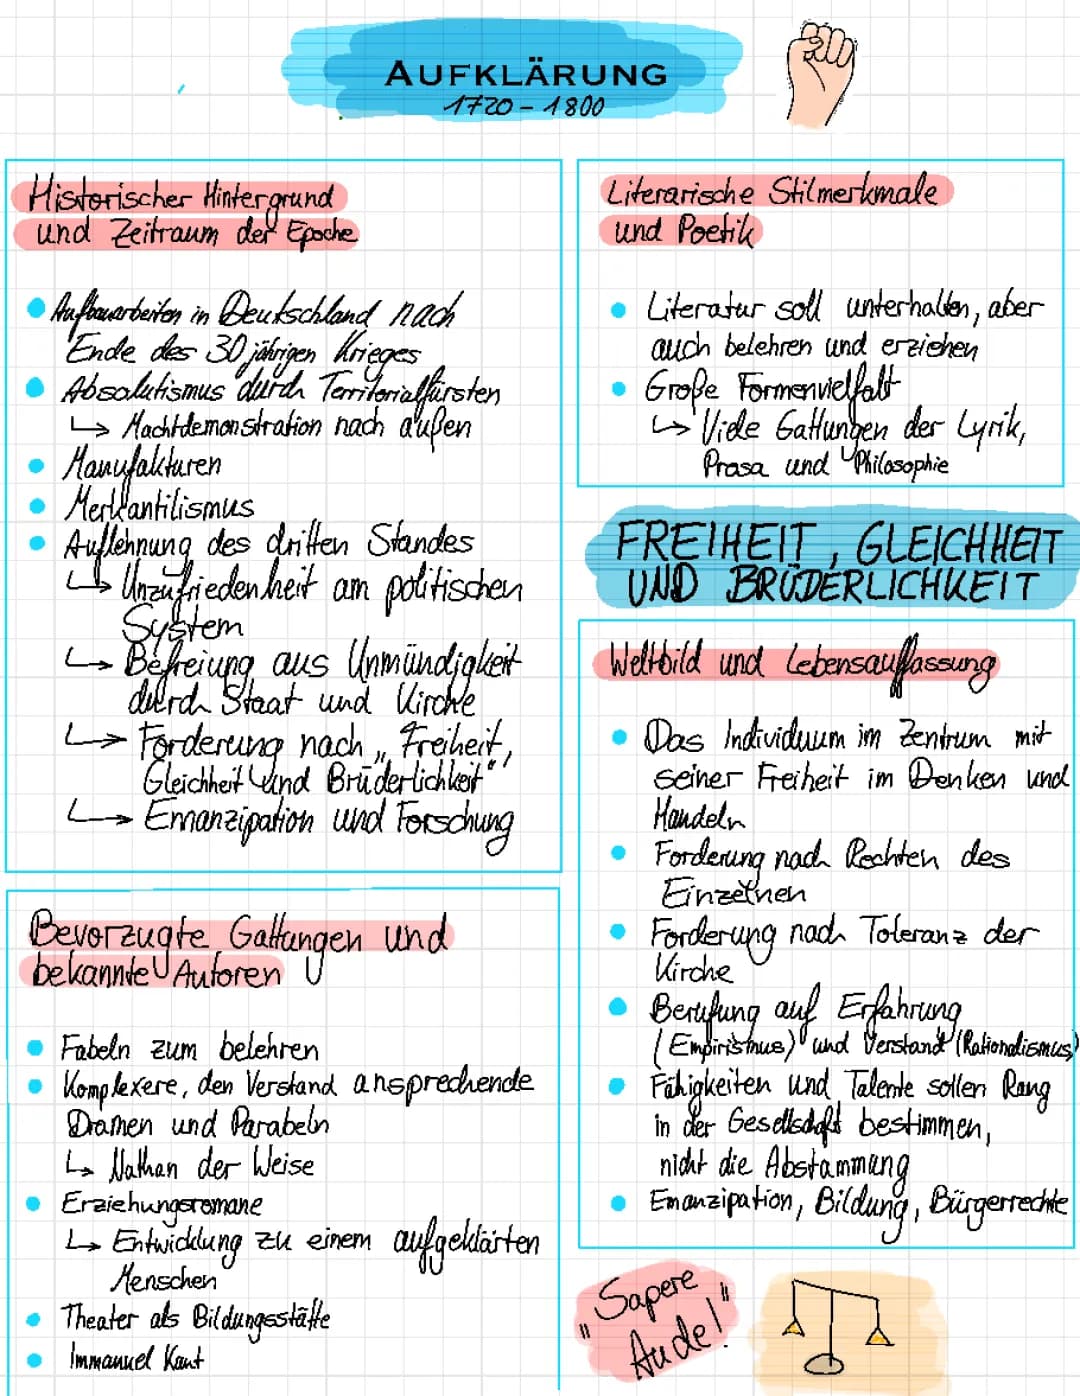 AUFKLÄRUNG
1720 - 1800
Historischer Hintergrund
und Zeitraum der Epoche
Aufbauarbeiten in Deutschland nach
Ende des 30 jährigen Krieges
Absolutismus durch Territorialfürsten
↳ Machtdemonstration nach außen
Manufakturen
Merkantilismus
Auflehnung des dritten Standes
↳ Unzufriedenheit am politischen
System
↳ Befreiung aus Unmündigkeit
durch Staat und Kirche
↳ Forderung nach „Freiheit,
Gleichheit und Brüderlichkeit"
↳ Emanzipation und Forschung
Bevorzugte Gattungen und
bekannte Autoren
Fabeln zum belehren
Komplexere, den Verstand ansprechende
Dramen und Parabeln
↳ Nathan der Weise
Erziehungsromane
↳ Entwicklung zu einem aufgeklärten
Menschen
Theater als Bildungsstätte
Immanuel Kant
Literarische Stilmerkmale
und Poetik
Literatur soll unterhalten, aber
auch belehren und erziehen
Große Formenvielfalt
↳ Viele Gattungen der Lyrik,
Prosa und Philosophie
FREIHEIT, GLEICHHEIT
UND BRÜDERLICHKEIT
Weltbild und Lebensauffassung
Das Individuum im Zentrum mit
seiner Freiheit im Denken und
Handeln
Forderung nach Rechten des
Einzelnen
Forderung nach Toleranz der
Kirche
Berufung auf Erfahrung
(Empirismus) und Verstand (Rationalismus)
Fähigkeiten und Talente sollen Rang
in der Gesellschaft bestimmen,
nicht die Abstammung
Emanzipation, Bildung, Bürgerrechte
"Sapere
Aude!"